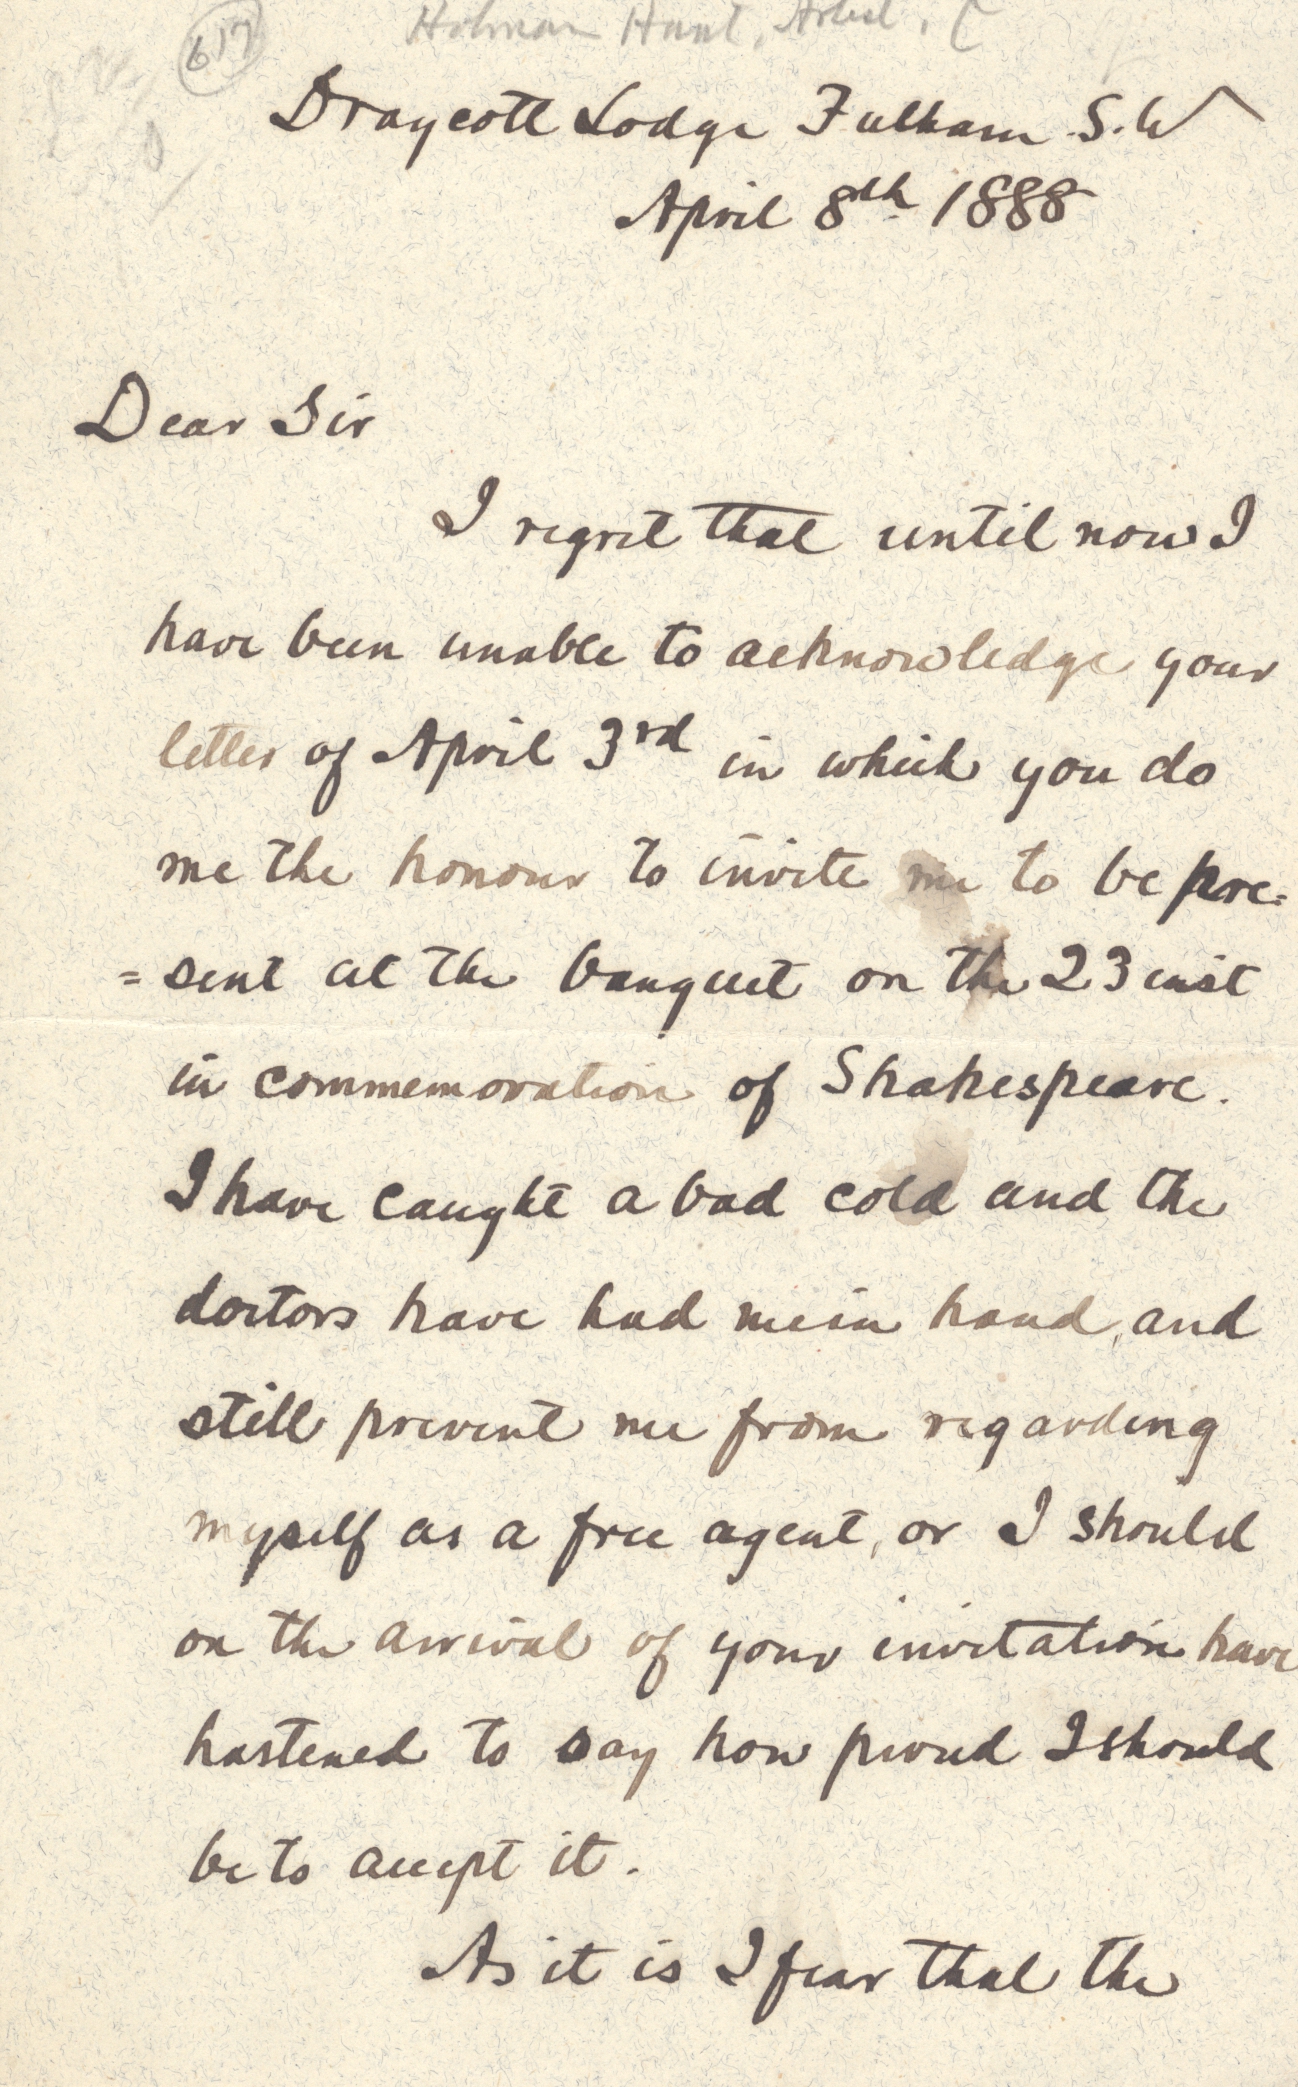 617
Holman Hunt, Artist,
Draycott Lodge Fulham S.W
April 8th 1888
Dear Sir
I regret that until now I
have been unable to acknowledge your
letter of April 3rd in which you do
me the honour to invite me to be pre=
=sent at the banquet on the 23 inst
in commemoration of Shakespeare.
I have caught a bad cold and the
doctors have had me in hand, and
still prevent me from regarding
myself as a free agent, or I should
on the arrival of your invitation have
hastened to say how proud I should
be to accept it.
As it is I fear that the